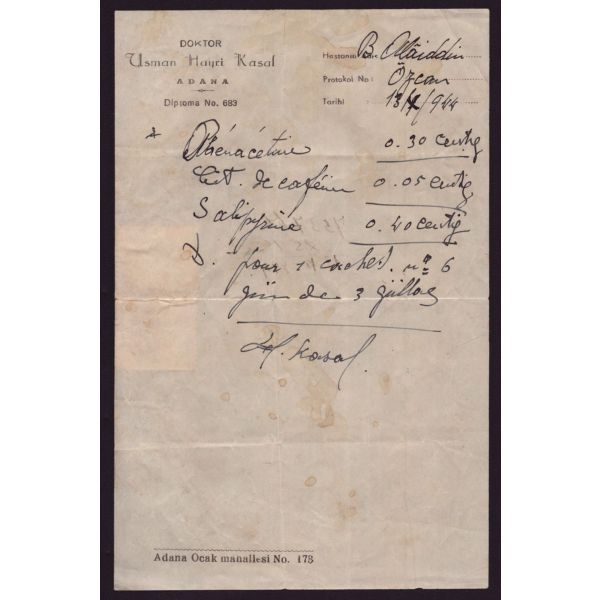 DOKTOR
Usman Hayri Kasal
ADANA
Diploma No. 683
Hastanın B. Alâiddin
Protokol No : Özcan
Tarihi 13/X/944
Phénacétine 0.30 centig
Cit. de caféine 0.05 centig
Salipyrine 0.40 centig
pour 1 cachet. nº 6
günde 3
H. Kasal.
Adana Ocak mahallesi No. 173